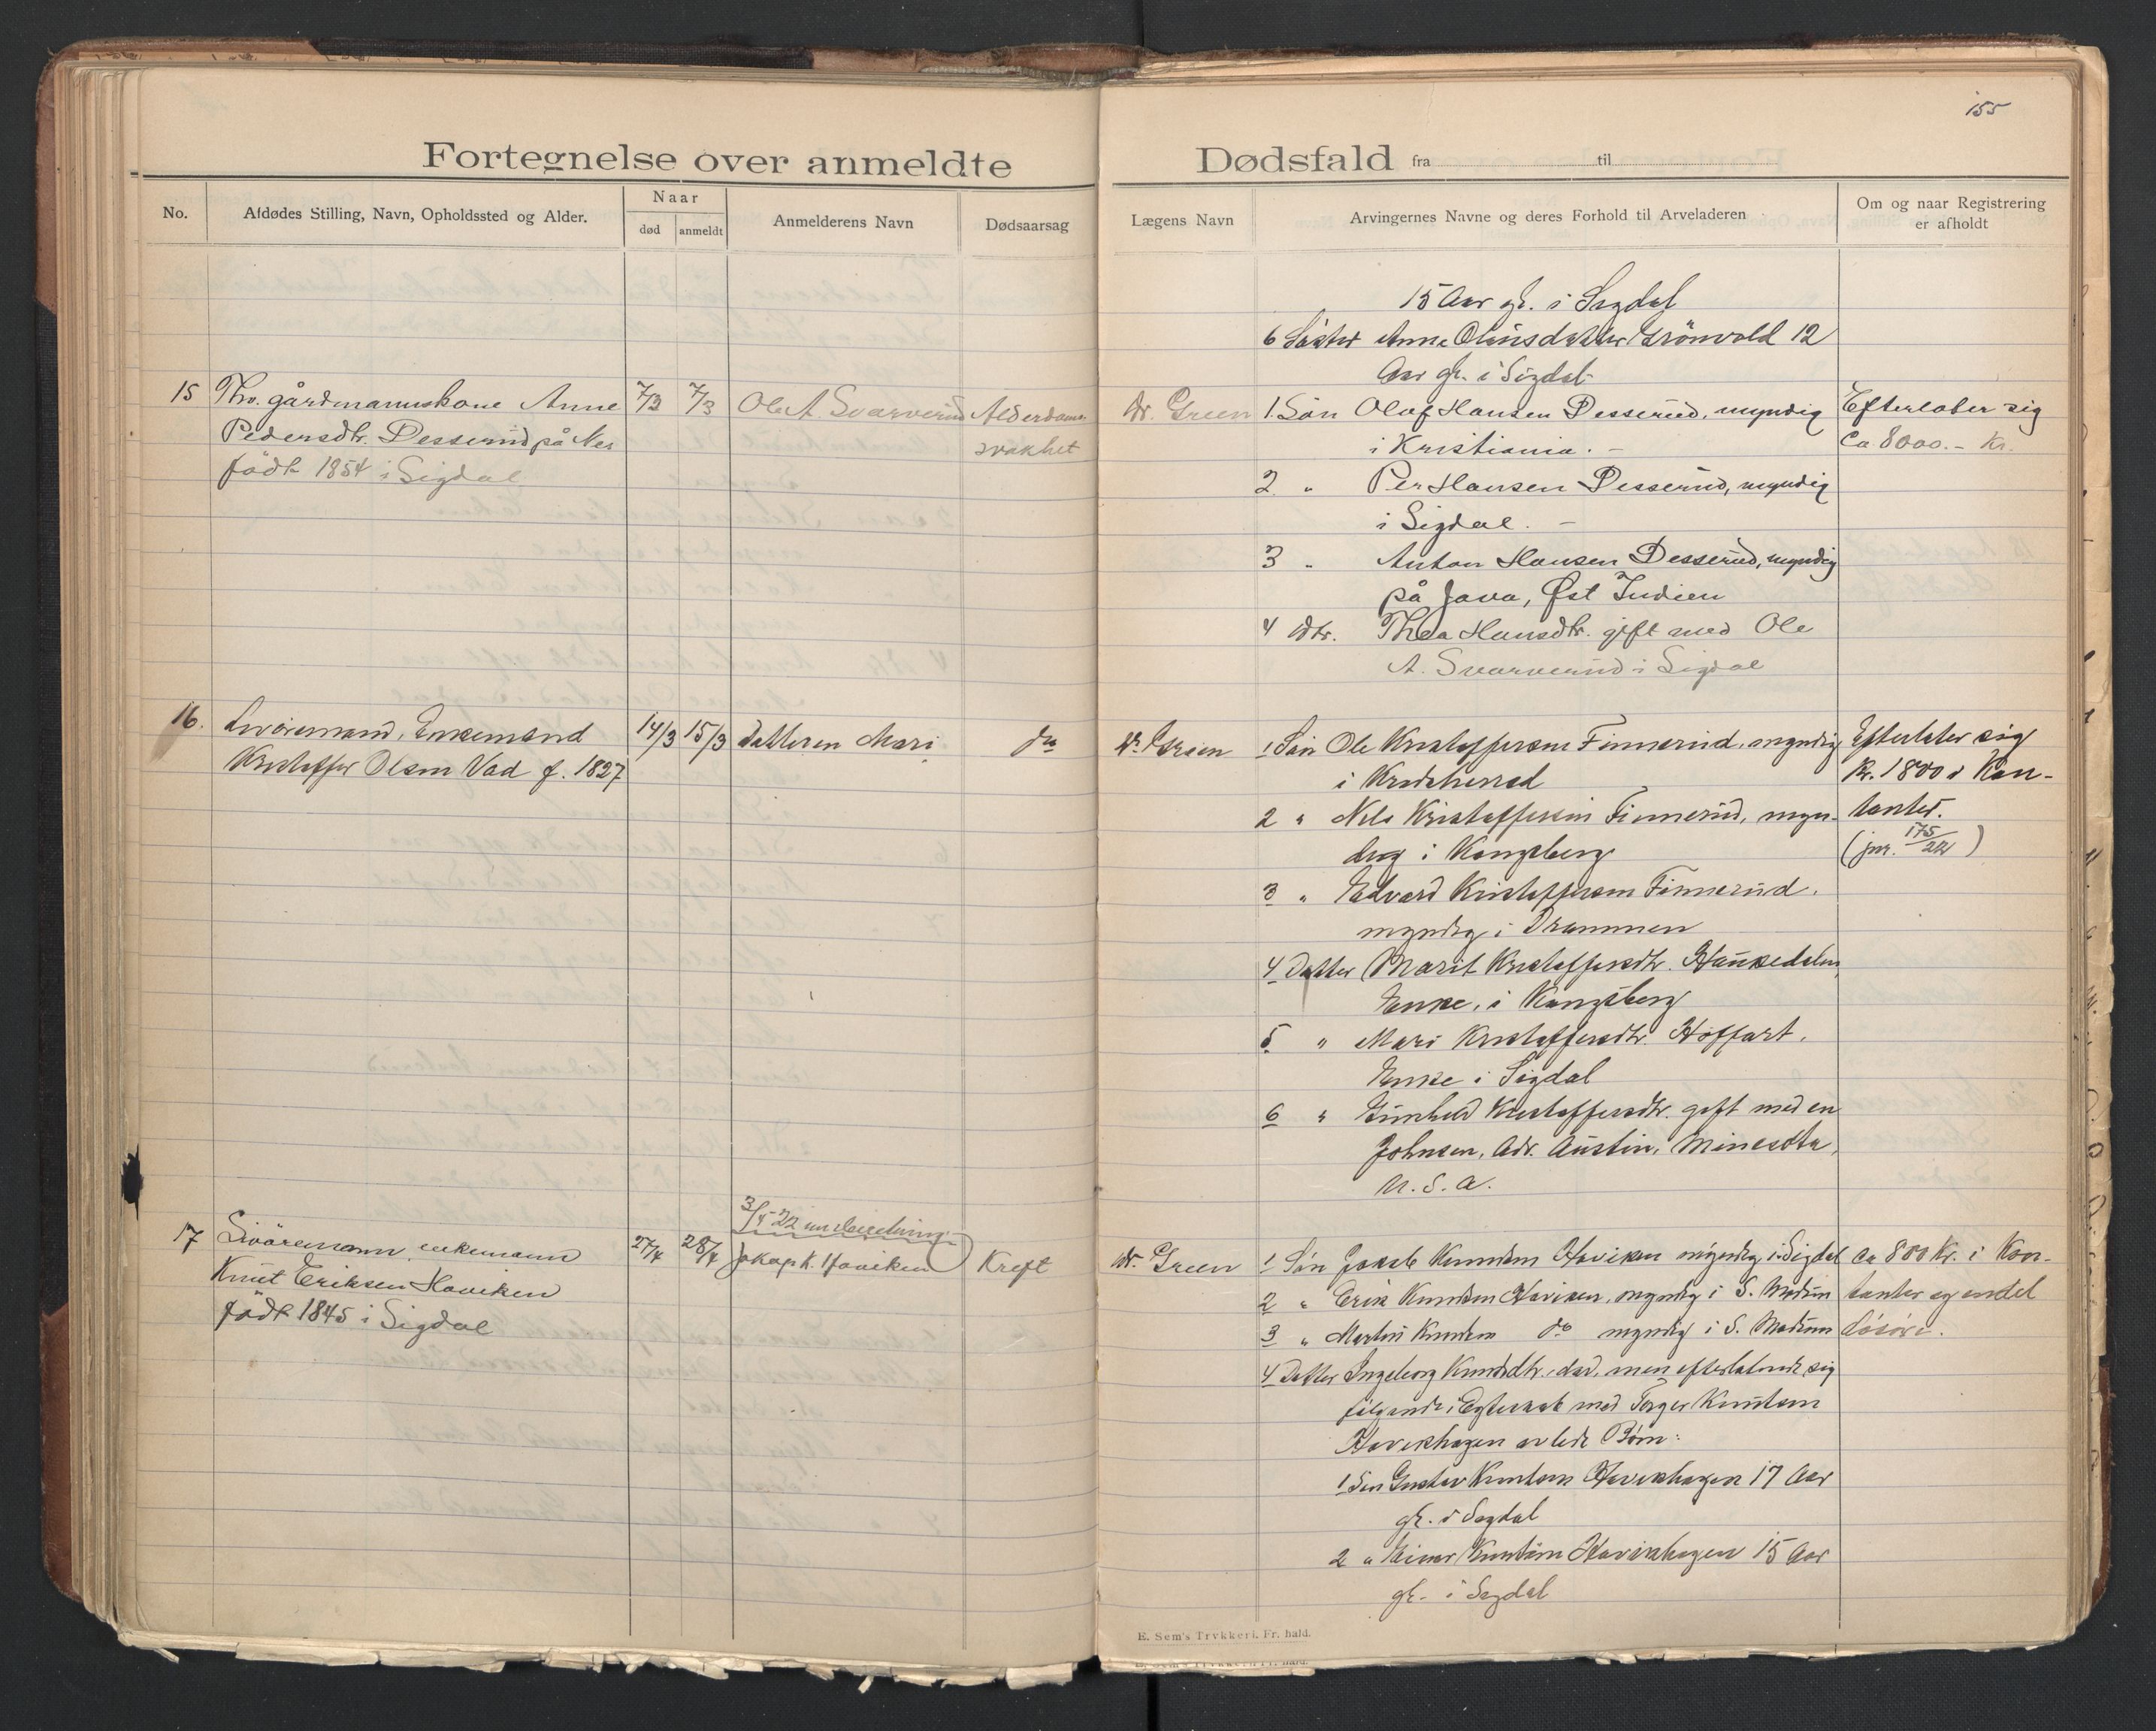 155
Fortegnelse over anmeldte Dødsfald fra til
No. Afdødes Stilling, Navn, Opholdssted og Alder. Naar død anmeldt Anmelderens Navn Dødsaarsag Lægens Navn Arvingernes Navne og deres Forhold til Arveladeren Om og naar Registrering er afholdt
15 Aar gl. i Sigdal
6 Søster Anne Olausdatter Grönvold 12
Aar gl. i Sigdal
15 Fhv. gårdmannskone Anne
Pedersdtr. Desserud på Nes
födt 1854 i Sigdal
7/3 7/3 Ole A. Svarverud Alderdoms-
svakhet
Dr. Green
1. Sön Olaf Hansen Desserud, myndig
i Kristiania. –
2 " Per Hansen Desserud, myndig
i Sigdal. –
3 " Anton Hansen Desserud, myndig
på Java, Øst Indien
4 dtr. Thea Hansdtr. gift med Ole
A. Svarverud i Sigdal
Efterlater sig
Ca 8000.– Kr.
16. Livöremand, Enkemand
Kristoffer Olsen Vad f. 1827
14/3 15/3 Datteren Mari do
Dr. Green
1 Sön Ole Kristoffersen Finnerud, myndig
i Krødsherred
2 " Nils Kristoffersen Finnerud, myn-
dig i Kongsberg
3 " Edvard Kristoffersen Finnerud.
myndig i Drammen
4 Datter Marit Kristoffersdtr. Haukedalen
Enke, i Kongsberg
5 " Mari Kristoffersdtr. Hoffart.
Enke i Sigdal
6 " Gunhild Kristoffersdtr. gift med en
Johnsen, Adr. Austin, Minesota,
U. S. A.
Efterlater sig
Kr. 1800 i Kon-
tanter.
(jnr. 175/22)
17 Livöremann, enkemann
Knut Eriksen Haviken
födt 1845 i Sigdal
27/4 28/4
3/5 22
Jakop K. Haviken Kreft
Dr. Green
1 Sön Jakob Knudsen Haviken myndig i Sigdal
2 " Erik Knudsen Haviken, myndig i S. Modum
3 " Martin Knudsen do myndig i S. Modum
4 Datter Ingeborg Knudsdtr. död, men efterlatende sig
følgende i Egteskab med Torger Knutsen
Havikhagen avlede Börn:
1 Sön Gustav Knutsen Havikhagen 17 Aar
gl. i Sigdal
2 " Einar Knutsen Havikhagen 15 Aar
gl. i Sigdal
Ca 800 Kr. i Kon-
tanter og endel
Lösöre.
E. Sem's Trykkeri, Fr. hald.